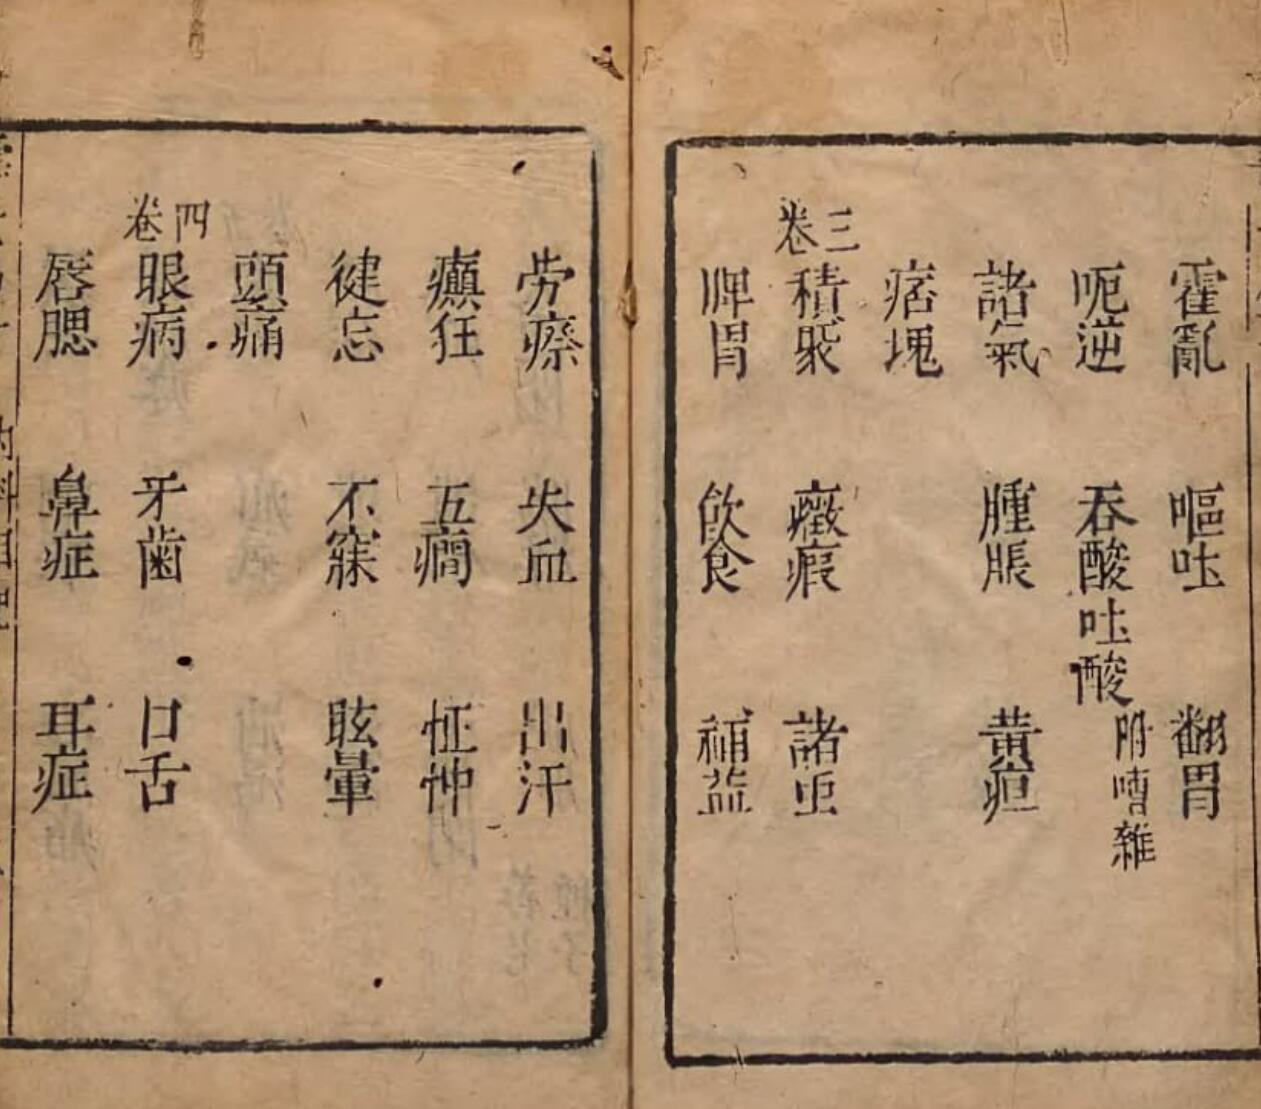 霍亂 嘔吐 翻胃
呃逆 吞酸吐酸 附嘈雜
諸氣 腫脹 黃疸
痞塊
三卷
積聚 癥瘕 諸虫
脾胃 飲食 補益
劳瘵 失血 出汗
癲狂 五癇 怔忡
徤忘 不寐 眩暈
頭痛
四卷
眼病 牙齒 口舌
唇腮 鼻症 耳症